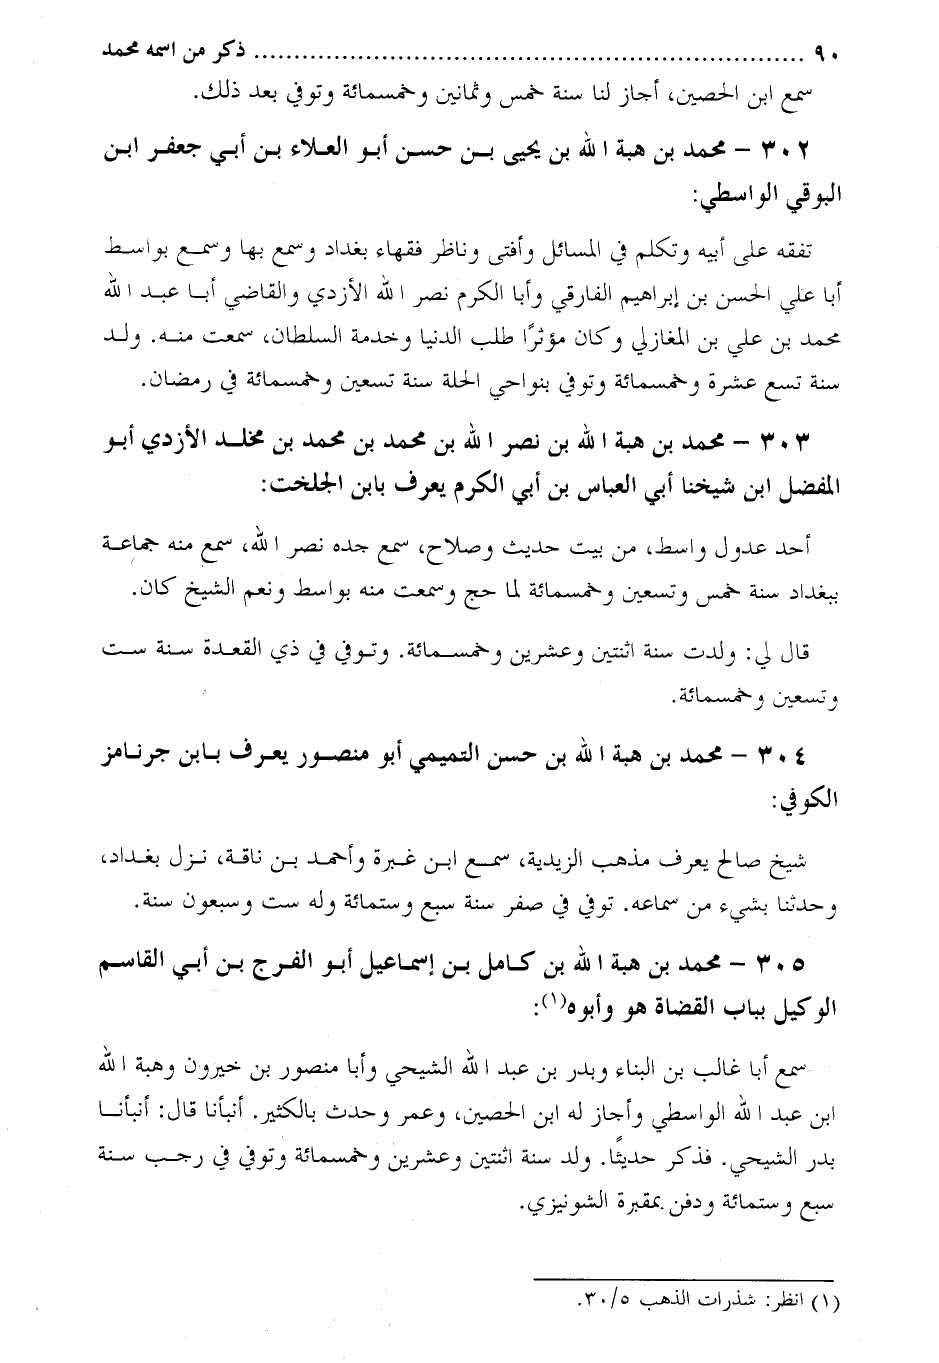 ٩٠ .................................................................. ذكر من اسمه محمد
سمع ابن الحصين، أجاز لنا سنة خمس وثمانين وخمسمائة وتوفي بعد ذلك.
٣٠٢ – محمد بن هبة الله بن يحيى بن حسن أبو العلاء بن أبي جعفر ابن
البوقي الواسطي:
تفقه على أبيه وتكلم في المسائل وأفتى وناظر فقهاء بغداد وسمع بها وسمع بواسط
أبا علي الحسن بن إبراهيم الفارقي وأبا الكرم نصر الله الأزدي والقاضي أبا عبد الله
محمد بن علي بن المغازلي وكان مؤثرًا طلب الدنيا وخدمة السلطان، سمعت منه. ولد
سنة تسع عشرة وخمسمائة وتوفي بنواحي الحلة سنة تسعين وخمسمائة في رمضان.
٣٠٣ – محمد بن هبة الله بن نصر الله بن محمد بن محمد بن مخلد الأزدي أبو
المفضل ابن شيخنا أبي العباس بن أبي الكرم يعرف بابن الجلخت:
أحد عدول واسط، من بيت حديث وصلاح، سمع جده نصر الله، سمع منه جماعة
ببغداد سنة خمس وتسعين وخمسمائة لما حج وسمعت منه بواسط ونعم الشيخ كان.
قال لي: ولدت سنة اثنتين وعشرين وخمسمائة. وتوفي في ذي القعدة سنة ست
وتسعين وخمسمائة.
٣٠٤ – محمد بن هبة الله بن حسن التميمي أبو منصور يعرف بابن جرنامز
الكوفي:
شيخ صالح يعرف مذهب الزيدية، سمع ابن غبرة وأحمد بن ناقة، نزل بغداد،
وحدثنا بشيء من سماعه. توفي في صفر سنة سبع وستمائة وله ست وسبعون سنة.
٣٠٥ – محمد بن هبة الله بن كامل بن إسماعيل أبو الفرج بن أبي القاسم
الوكيل بباب القضاة هو وأبوه(١):
سمع أبا غالب بن البناء وبدر بن عبد الله الشيحي وأبا منصور بن خيرون وهبة الله
ابن عبد الله الواسطي وأجاز له ابن الحصين، وعمر وحدث بالكثير. أنبأنا قال: أنبأنا
بدر الشيحي. فذكر حديثًا. ولد سنة اثنتين وعشرين وخمسمائة وتوفي في رجب سنة
سبع وستمائة ودفن بمقبرة الشونيزي.
(١) انظر: شذرات الذهب ٣٠/٥.